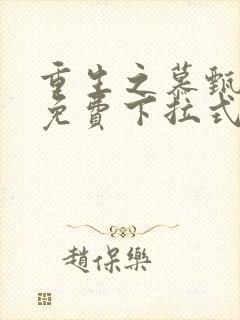 重生之慕甄
免費下拉式
趙保樂